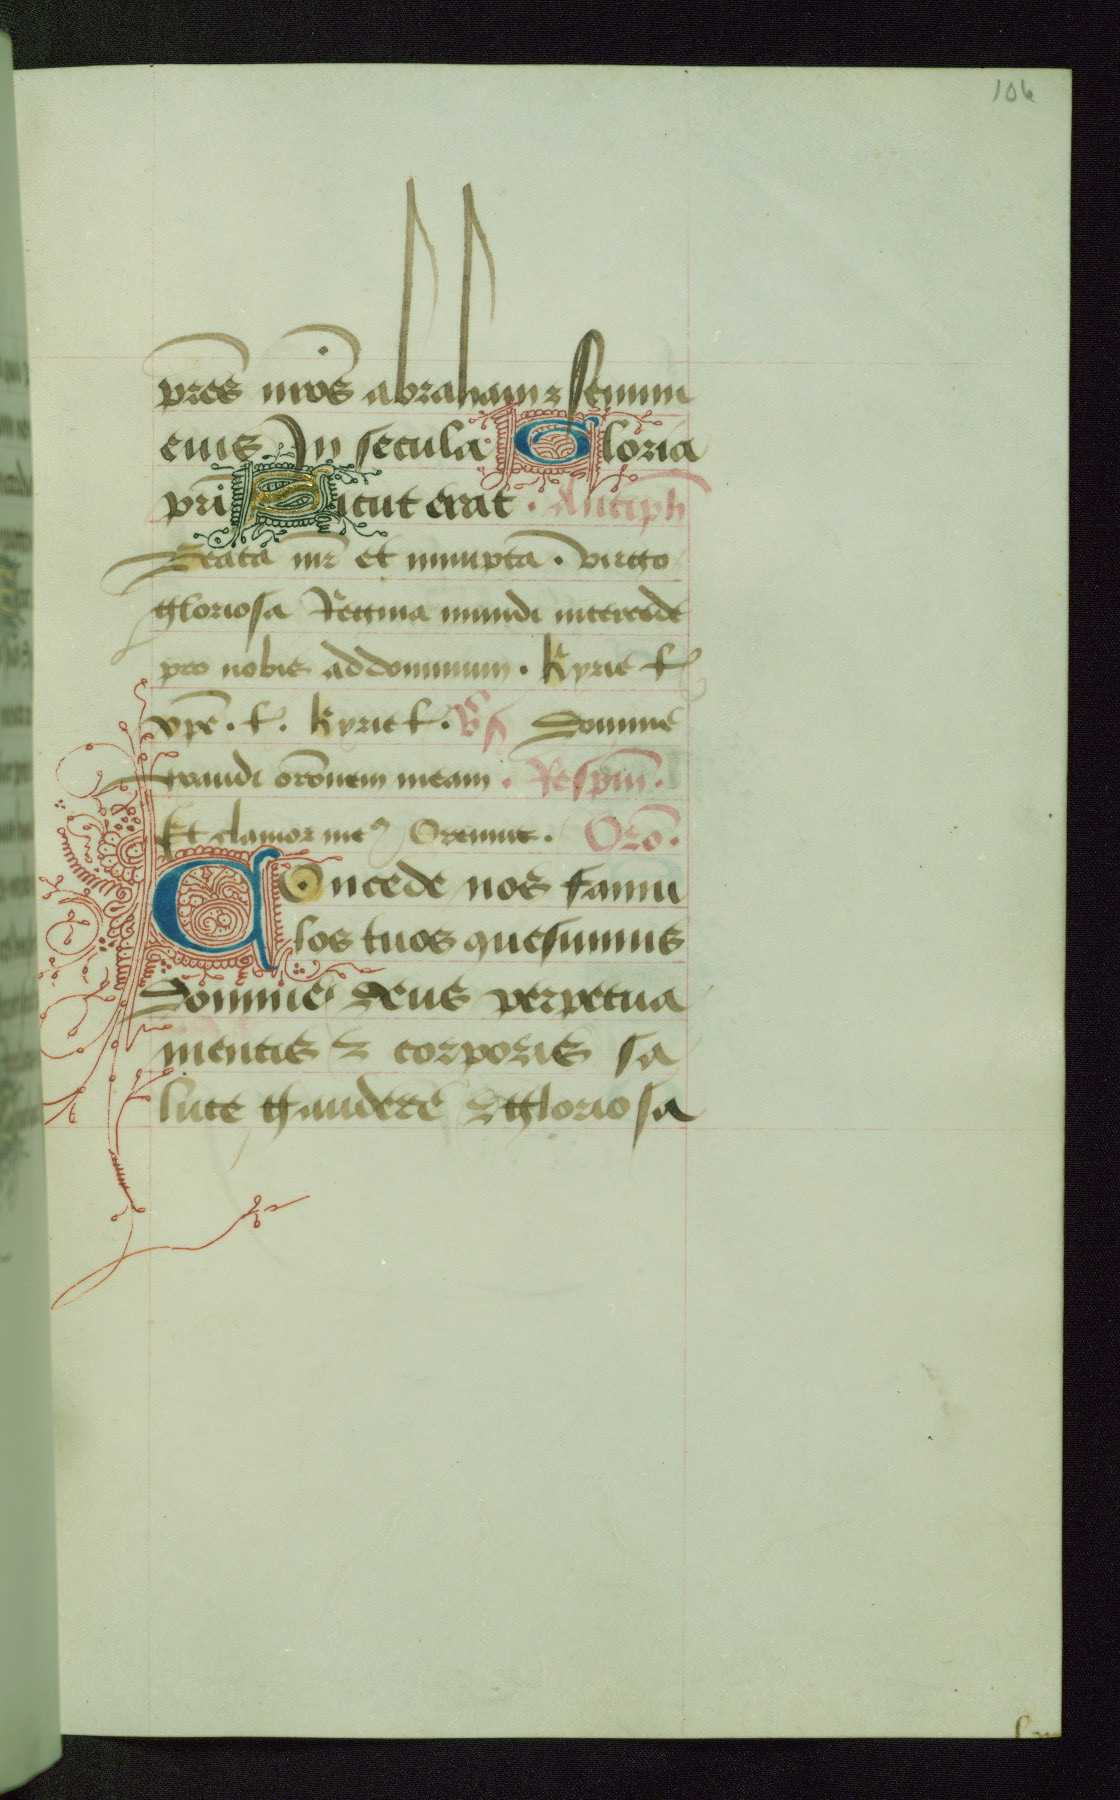 106
pr̄es nr̄os abraham ⁊ semini
eius In secula Gloria
pr̄i Sicut erat · Antiph
Beata mr̄ et innupta · virgo
gloriosa Regina mundi intercede
pro nobis ad dominum · Kyrie ł
xp̄e · ł · Kyrie ł · Vs̄ Domine
exaudi orōnem meam · Respm̄ ·
Et clamor me⁹ Oremus · Orō ·
Concede nos famu
los tuos quesumus
domine deus perpetua
mentis ⁊ corporis sa
lute gaudere ⁊ gloriosa